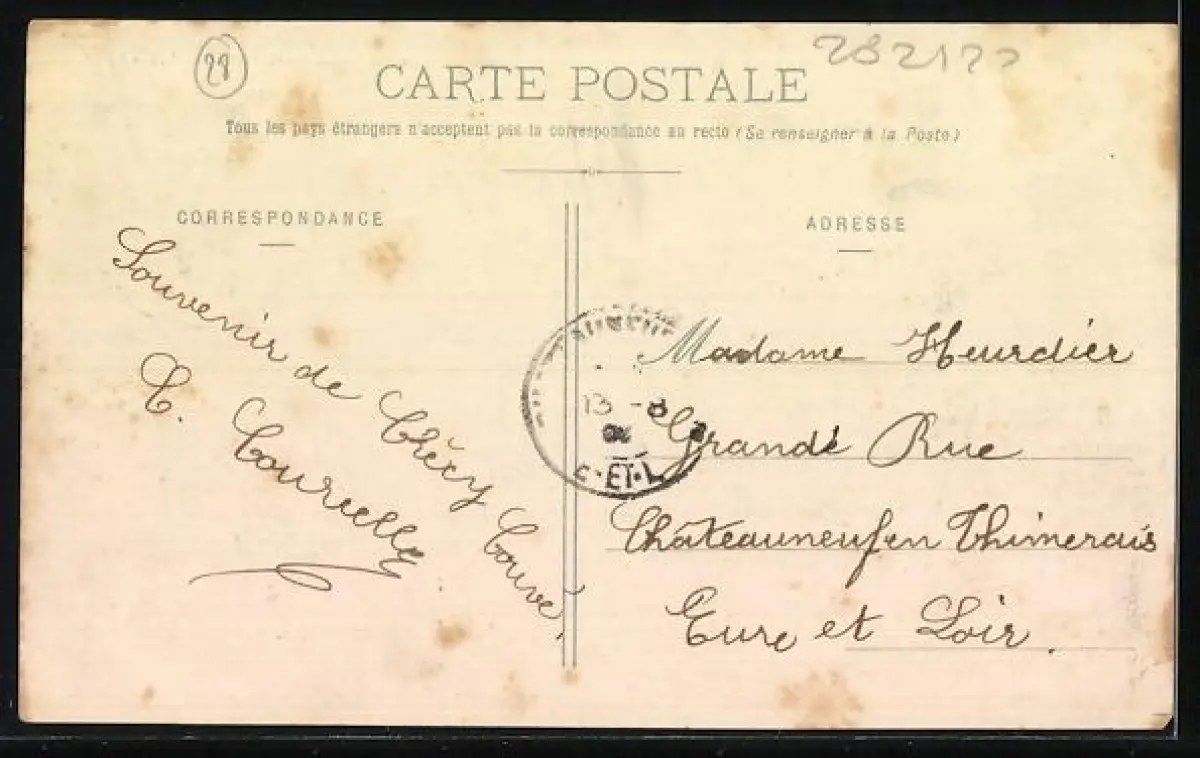 28
282122
CARTE POSTALE
Tous les pays étrangers n'acceptent pas la correspondance au recto (Se renseigner à la Poste)
CORRESPONDANCE
Souvenir de Crécy Couvé,
C.
ADRESSE
Madame Heurdier
Grande Rue
Châteauneuf en Thimerais
Eure et Loir.
13 -8
E-ET-L